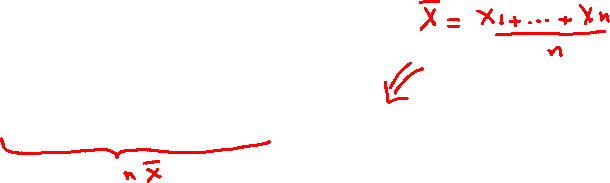 X̄ = X₁ + ... + Xn
n
n X̄